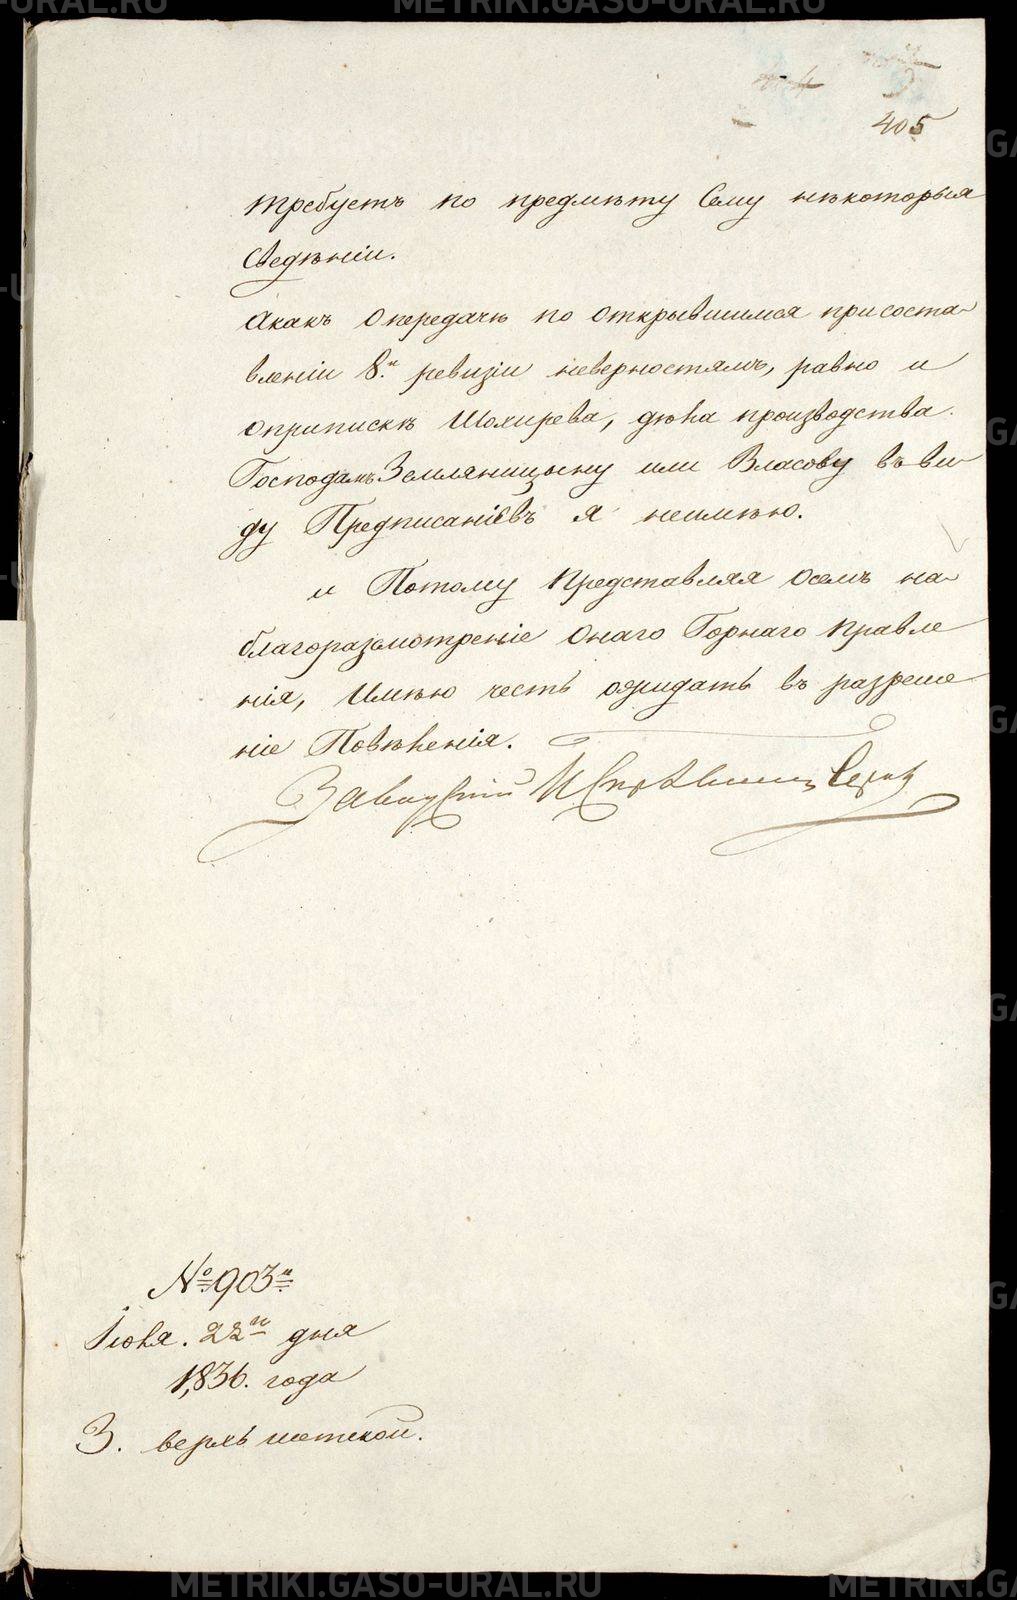 METRIKI.GASO-URAL.RU
405
требуетъ по предмѣту Сему нѣкоторыя
Сведѣніи.
Акакъ Опередачѣ по открывшимся присоста-
вленіи 8.й ревизіи неверностямъ, равно и
оприпискѣ Шохирева, дѣла производства
Господамъ Земляницыну или Власову въ ви-
ду Предписаніевъ я неимѣю.
и Потому представляя осемъ на-
благоразсмотреніе Онаго Горнаго правле
нія, Имѣю честь ожидать въ разреше
ніе Повѣленія.
Заводской Исправникъ
№ 903й
Іюля. 22го дня
1836. года
З. верхъ исетской.
METRIKI.GASO-URAL.RU